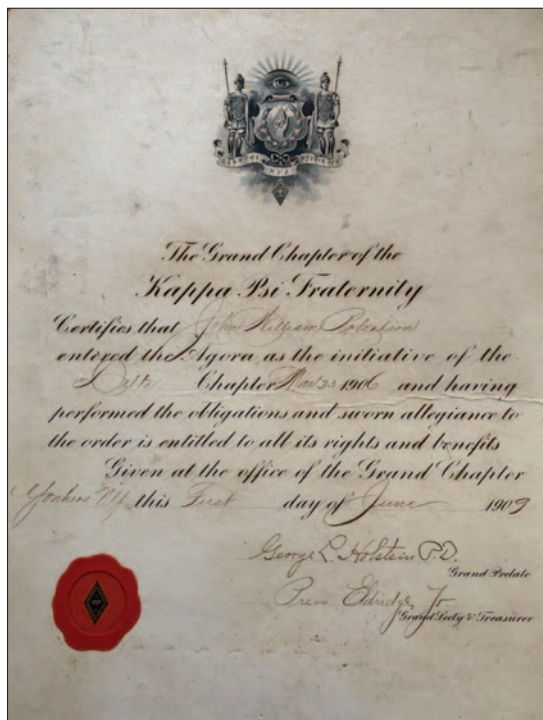 The Grand Chapter of the
Kappa Psi Fraternity
Certifies that John William Robertson
entered the Agora as the initiative of the
Delta Chapter 23 1906 and having
performed the obligations and sworn allegiance to
the order is entitled to all its rights and benefits
Given at the office of the Grand Chapter
Yonkers NY this First day of June 1909
George L. Holstein P.D.
Grand Prelate
Press Eldridge, Jr
Grand Secty & Treasurer